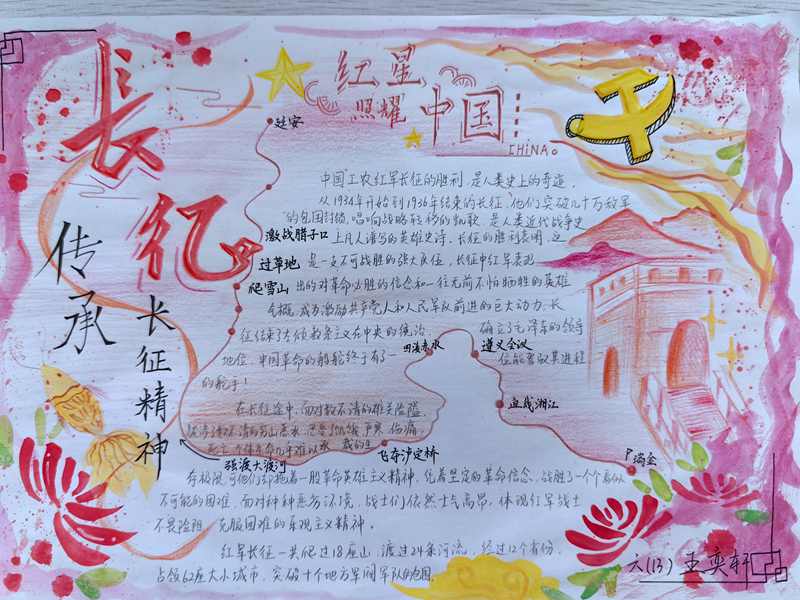 长征
传承
长征精神
红星
照耀中国
CHiNA。
延安
激战腊子口
过草地
爬雪山
遵义会议
血战湘江
瑞金
飞夺泸定桥
强渡大渡河
中国工农红军长征的胜利,是人类史上的奇迹,
从1934年开始到1936年结束的长征,他们突破几十万敌军
的包围封锁,唱响战略转移的凯歌,是人类近代战争史
上凡人谱写的英雄史诗,长征的胜利表明,这
是一支不可战胜的强大良伍,长征中红军表现
出的对革命必胜的信念和一往无前不怕牺牲的英雄
气概,成为激励共产党人和人民军队前进的巨大动力,长
征结束了左倾教条主义在中央的统治, 确立了毛泽东的领导
地位,中国革命的航船终于有了一
的舵手!
在长征途中,面对数不清的雄关险隘,
夺极限,可他们却抱着一股革命英雄主义精神,凭着坚定的革命信念,战胜了一个个看似
不可能的困难,面对种种恶劣环境,战士们依然士气高昂,体现红军战士
不畏险阻,克服困难的乐观主义精神。
红军长征一共爬过18座山,渡过24条河流,经过12个省份,
占领62座大小城市,突破十个地方军阀军队的包围
六(13) 王奕轩